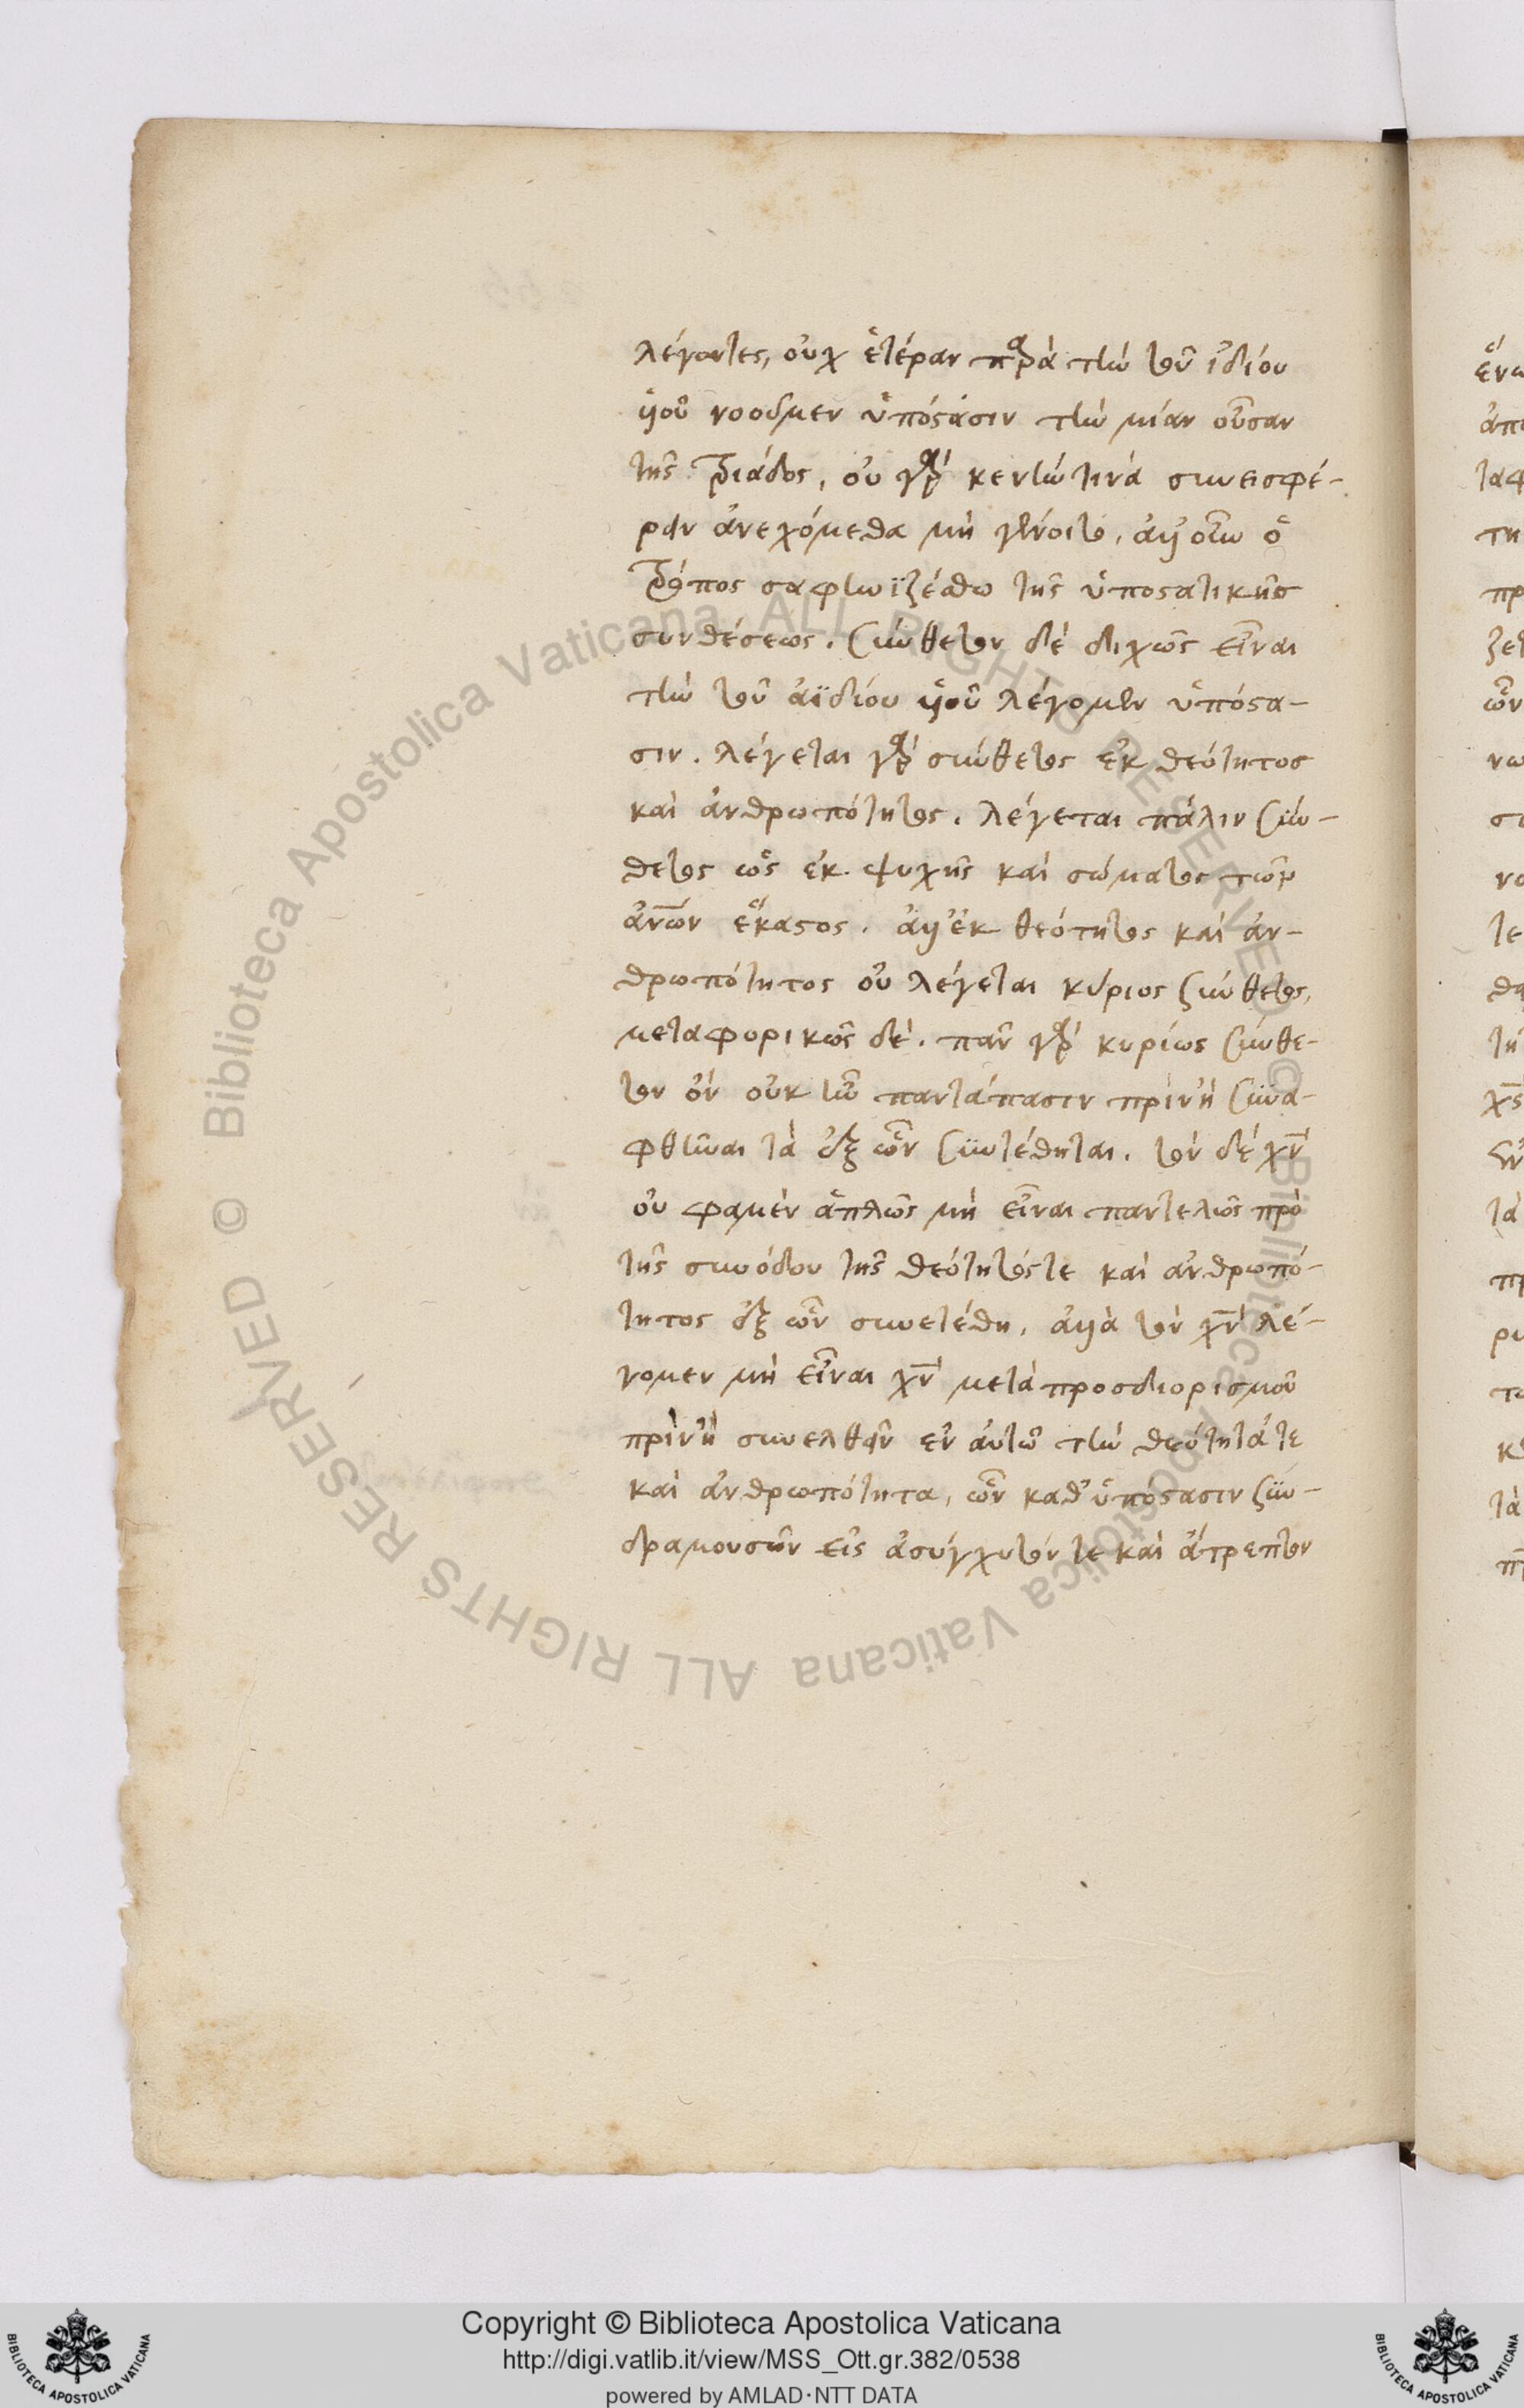 λέγοντες, οὐχ ἑτέραν παρὰ τὴν τοῦ ἰδίου
υἱοῦ νοοῦμεν ὑπόστασιν τὴν μίαν οὖσαν
τῆς τριάδος, οὐ γὰρ κενήν τινα συνεισφέ-
ρειν ἀνεχόμεθα μὴ γένοιτο, ἀλλ' οὕτω ὁ
τρόπος σαφηνιζέσθω τῆς ὑποστατικῆς
συνθέσεως. σύνθετον δὲ διχῶς εἶναι
τὴν τοῦ ἀϊδίου υἱοῦ λέγομεν ὑπόστα-
σιν. λέγεται γὰρ σύνθετος ἐκ θεότητος
καὶ ἀνθρωπότητος. λέγεται πάλιν σύν-
θετος ὡς ἐκ ψυχῆς καὶ σώματος τῶν
ἀνῶν ἕκαστος. ἀλλ' ἐκ θεότητος καὶ ἀν-
θρωπότητος οὐ λέγεται κύριος σύνθετος,
μεταφορικῶς δέ. πᾶν γὰρ κυρίως σύνθε-
τον ὂν οὐκ ἦν παντάπασιν πρὶν ἢ συνα-
φθῆναι τὰ ἐξ ὧν συντέθηται. τὸν δὲ χν
οὐ φαμὲν ἁπλῶς μὴ εἶναι παντελῶς πρὸ
τῆς συνόδου τῆς θεότητός τε καὶ ἀνθρωπό-
τητος ἐξ ὧν συνετέθη, ἀλλὰ τὸν χν λέ-
γομεν μὴ εἶναι χν μετὰ προσδιορισμοῦ
πρὶν ἢ συνελθεῖν ἐν αὐτῷ τὴν θεότητά τε
καὶ ἀνθρωπότητα, ὧν καθ' ὑπόστασιν συν-
δραμουσῶν εἰς ἀσύγχυτόν τε καὶ ἄτρεπτον
Copyright © Biblioteca Apostolica Vaticana
http://digi.vatlib.it/view/MSS_Ott.gr.382/0538
powered by AMLAD·NTT DATA